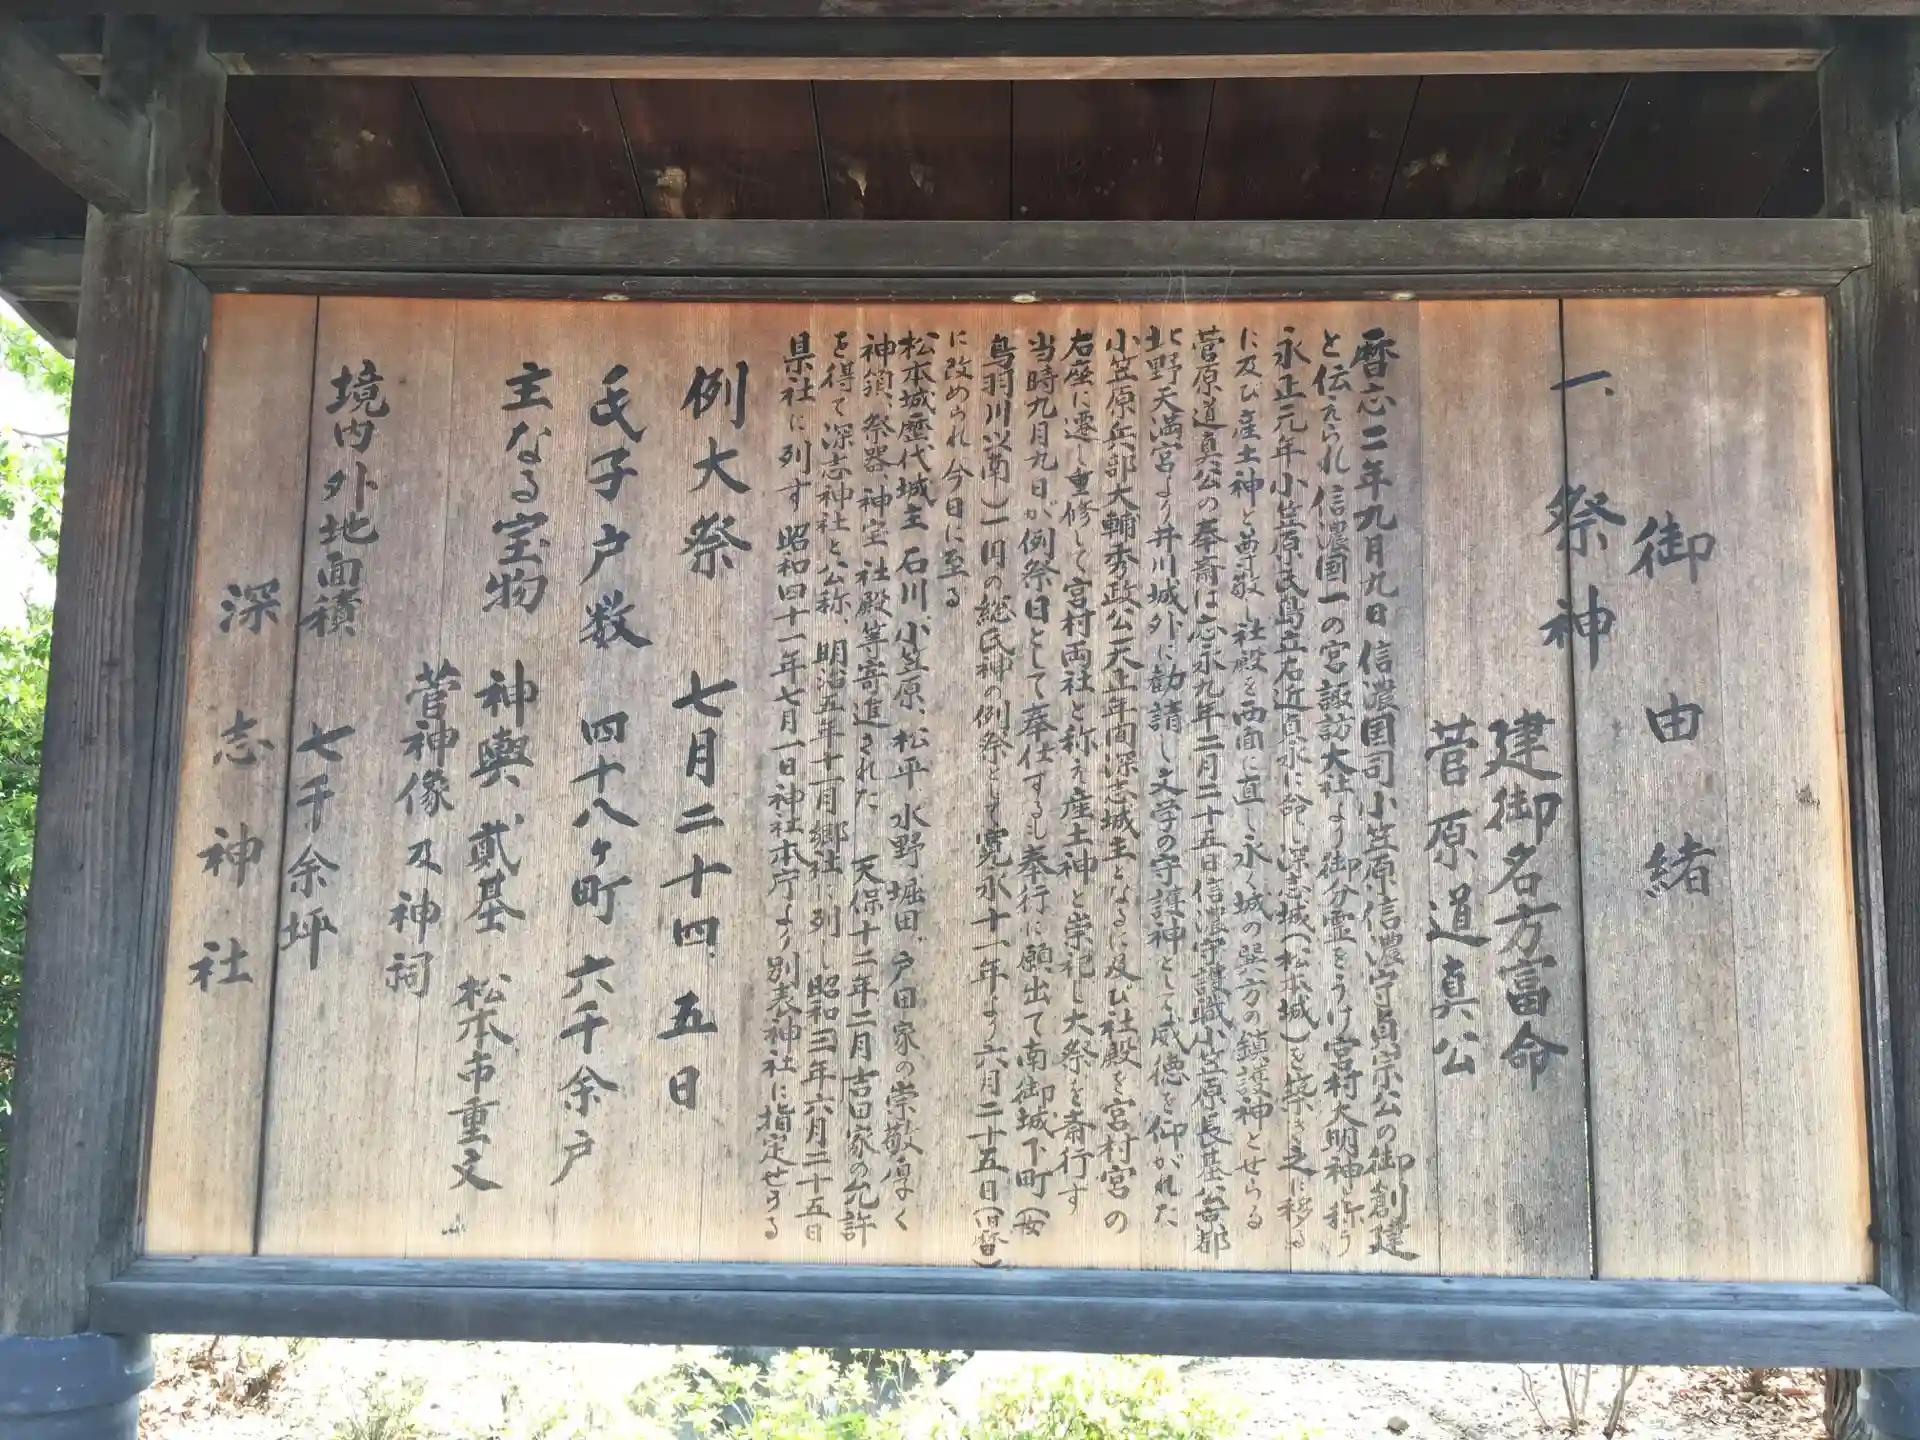 御由緒
一、祭神
建御名方富命
菅原道真公
暦応二年九月九日信濃国司小笠原信濃守貞宗公の御創建
と伝えられ信濃国一の宮諏訪大社より御分霊をうけ宮村大明神と称う
永正元年小笠原氏島立右近貞永に命し深志城(松本城)を築き之に移る
に及び産土神と尊敬し社殿を西面に直し永く城の巽方の鎮護神とせらる
菅原道真公の奉斎は応永九年二月二十五日信濃守護職小笠原長基公京都
北野天満宮より井川城外に勧請し文学の守護神として威徳を仰がれた
小笠原兵部大輔秀政公天正年間深志城主となるに及び社殿を宮村宮の
右座に遷し重修して宮村両社と称え産土神と崇祀し大祭を斎行す
当時九月九日が例祭日として奉仕するも奉行に願出て南御城下町(女
鳥羽川以南)一円の総氏神の例祭として寛永十一年より六月二十五日(旧暦)
に改められ今日に至る
松本城歴代城主石川、小笠原、松平、水野、堀田、戸田家の崇敬厚く
神領、祭器、神宝、社殿等寄進された 天保十二年二月吉田家の允許
を得て深志神社と公称、明治五年十一月郷社に列し昭和三年六月二十五日
県社に列す昭和四十一年七月一日神社本庁より別表神社に指定せらる
例大祭 七月二十四、五日
氏子戸数 四十八ヶ町 六千余戸
主なる宝物 神輿 貳基 松本市重文
菅神像及神詞
境内外地面積 七千余坪
深志神社